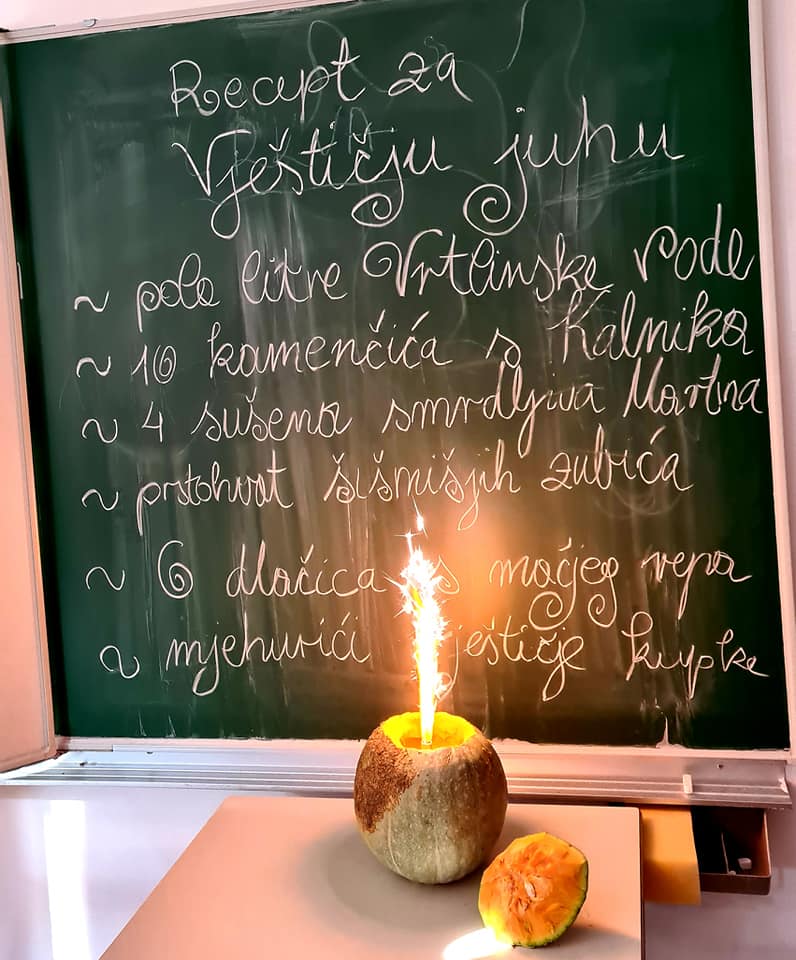 Recept za
Vještičju juhu
~ pola litre Vrtlinske vode
~ 10 kamenčića s Kalnika
~ 4 sušena smrdljiva Martina
~ prstohvat šišmišjih zubića
~ 6 dlačica s mačjeg repa
~ mjehurići vještičje kupke